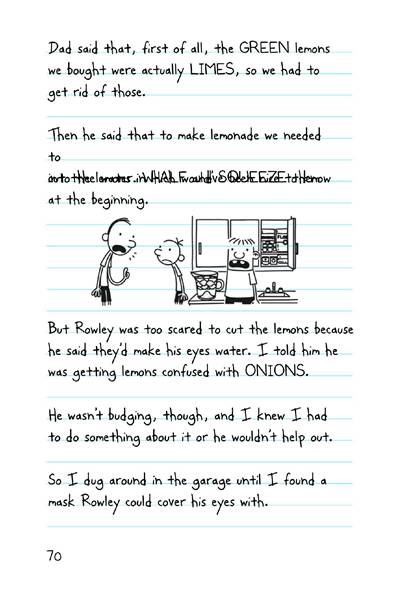 Dad said that, first of all, the GREEN lemons
we bought were actually LIMES, so we had to
get rid of those.
Then he said that to make lemonade we needed
to
SQUEEZE
at the beginning.
But Rowley was too scared to cut the lemons because
he said they'd make his eyes water. I told him he
was getting lemons confused with ONIONS.
He wasn't budging, though, and I knew I had
to do something about it or he wouldn't help out.
So I dug around in the garage until I found a
mask Rowley could cover his eyes with.
70